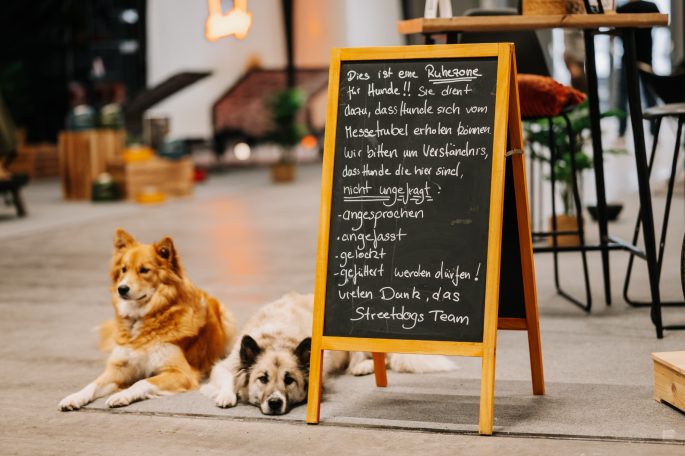 Dies ist eine Ruhezone
für Hunde!! Sie dient
dazu, dass Hunde sich vom
Messetrubel erholen können.
Wir bitten um Verständnis,
dass Hunde die hier sind,
nicht ungefragt:
- angesprochen
- angefasst
- gelockt
- gefüttert werden dürfen!
Vielen Dank, das
Streetdogs Team